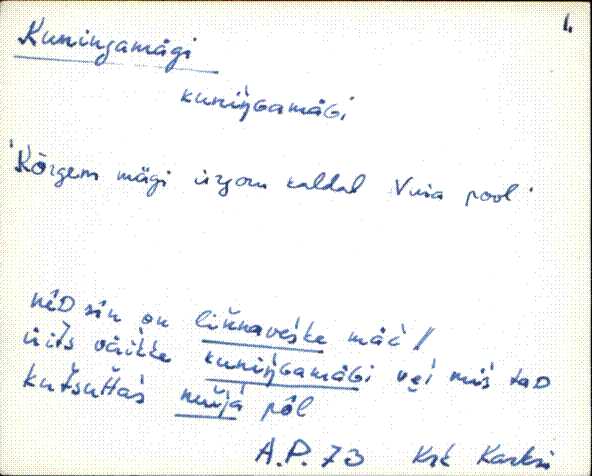 1.
Kuningamägi
kuniŋGamäGi
'Kõrgem mägi ürgoru kaldal Vuia pool'
nēD sīn on liňnaveśke mäè /
üitś väikke kuniŋGamäGi vei mis taD
kutsuttas muìjà pōl
A.P. 73 Ksi Karksi